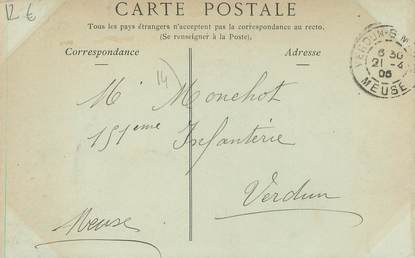 12 €
CARTE POSTALE
Tous les pays étrangers n'acceptent pas la correspondance au recto.
(Se renseigner à la Poste).
Correspondance
Adresse
VERDUN-S-M
6 30
21 - 4
06
MEUSE
14
Mr Monchot
151eme Infanterie
Verdun
Meuse